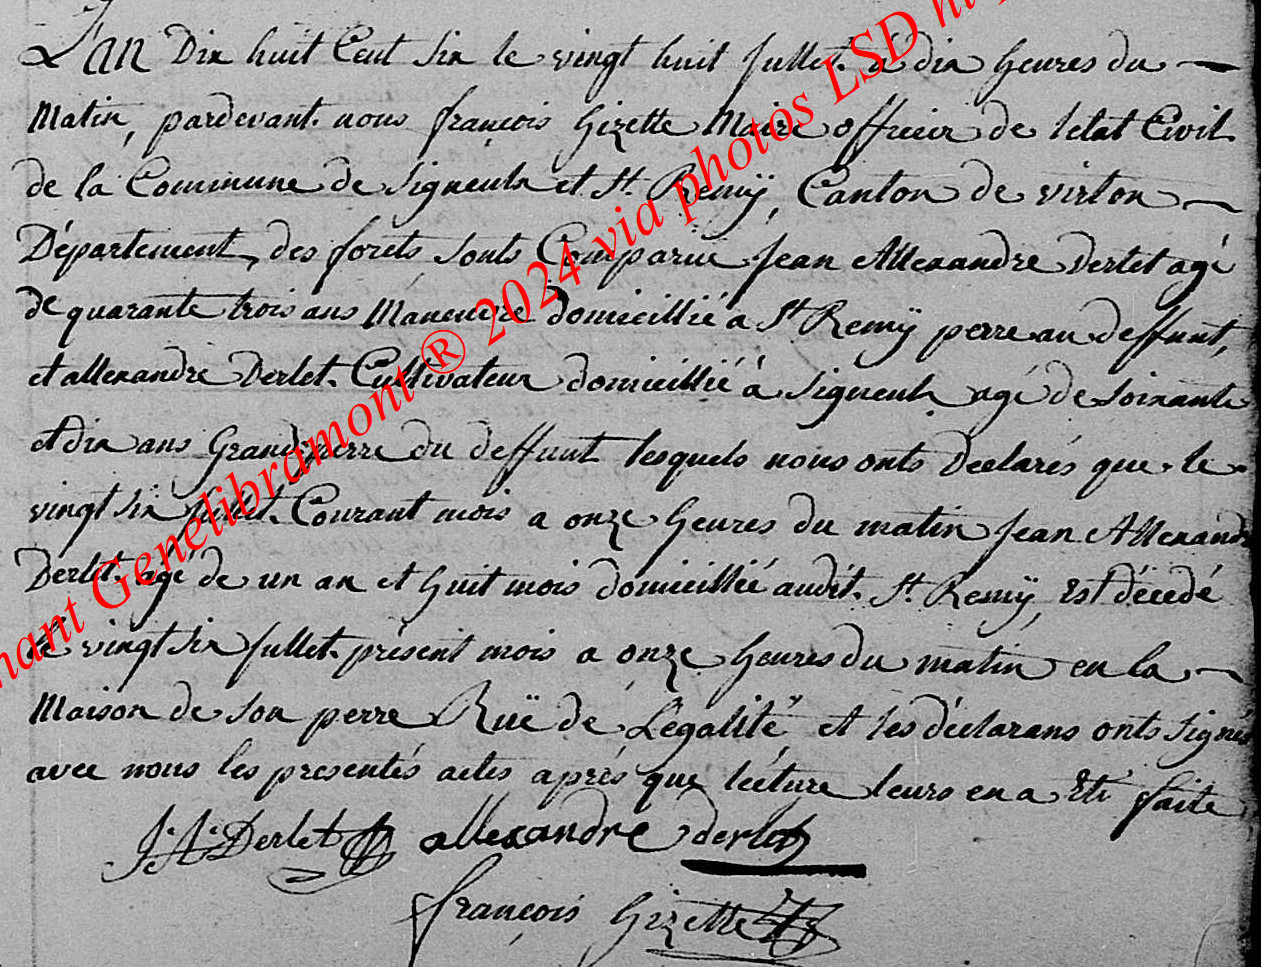 L'an Dix huit Cent six le vingt huit Jullet. à dix heures du
Matin, pardevant. nous françois Gizette Maire officier de letat Civil.
de la Commune de Signeulx et St. Remÿ, Canton de virton
Département, des forets sonts Comparue Jean Allexandre Derlet agé
de quarante trois ans Maneuvre domicillié a St Remÿ perre au deffunt,
et allexandre Derlet. Cultivateur domicillié à Signeulx agé de soixante
et dix ans Grandperre du deffunt lesquels nous onts Déclarés que le
vingt six Jullet. Courant mois a onze heures du matin Jean Allexandre
Derlet. agé de un an et huit mois domicillié audit. St. Remÿ, Est décédé
le vingt six Jullet. présent mois a onze heures du matin en la
Maison de son perre Ruë de Légalité et les déclarans onts signés
avec nous les presentés actes aprés que lécture leurs en a Eté faite
J. A. Derlet allexandre derlet
françois Gizette
nant Genelibramont ® 2024 via photos LSD